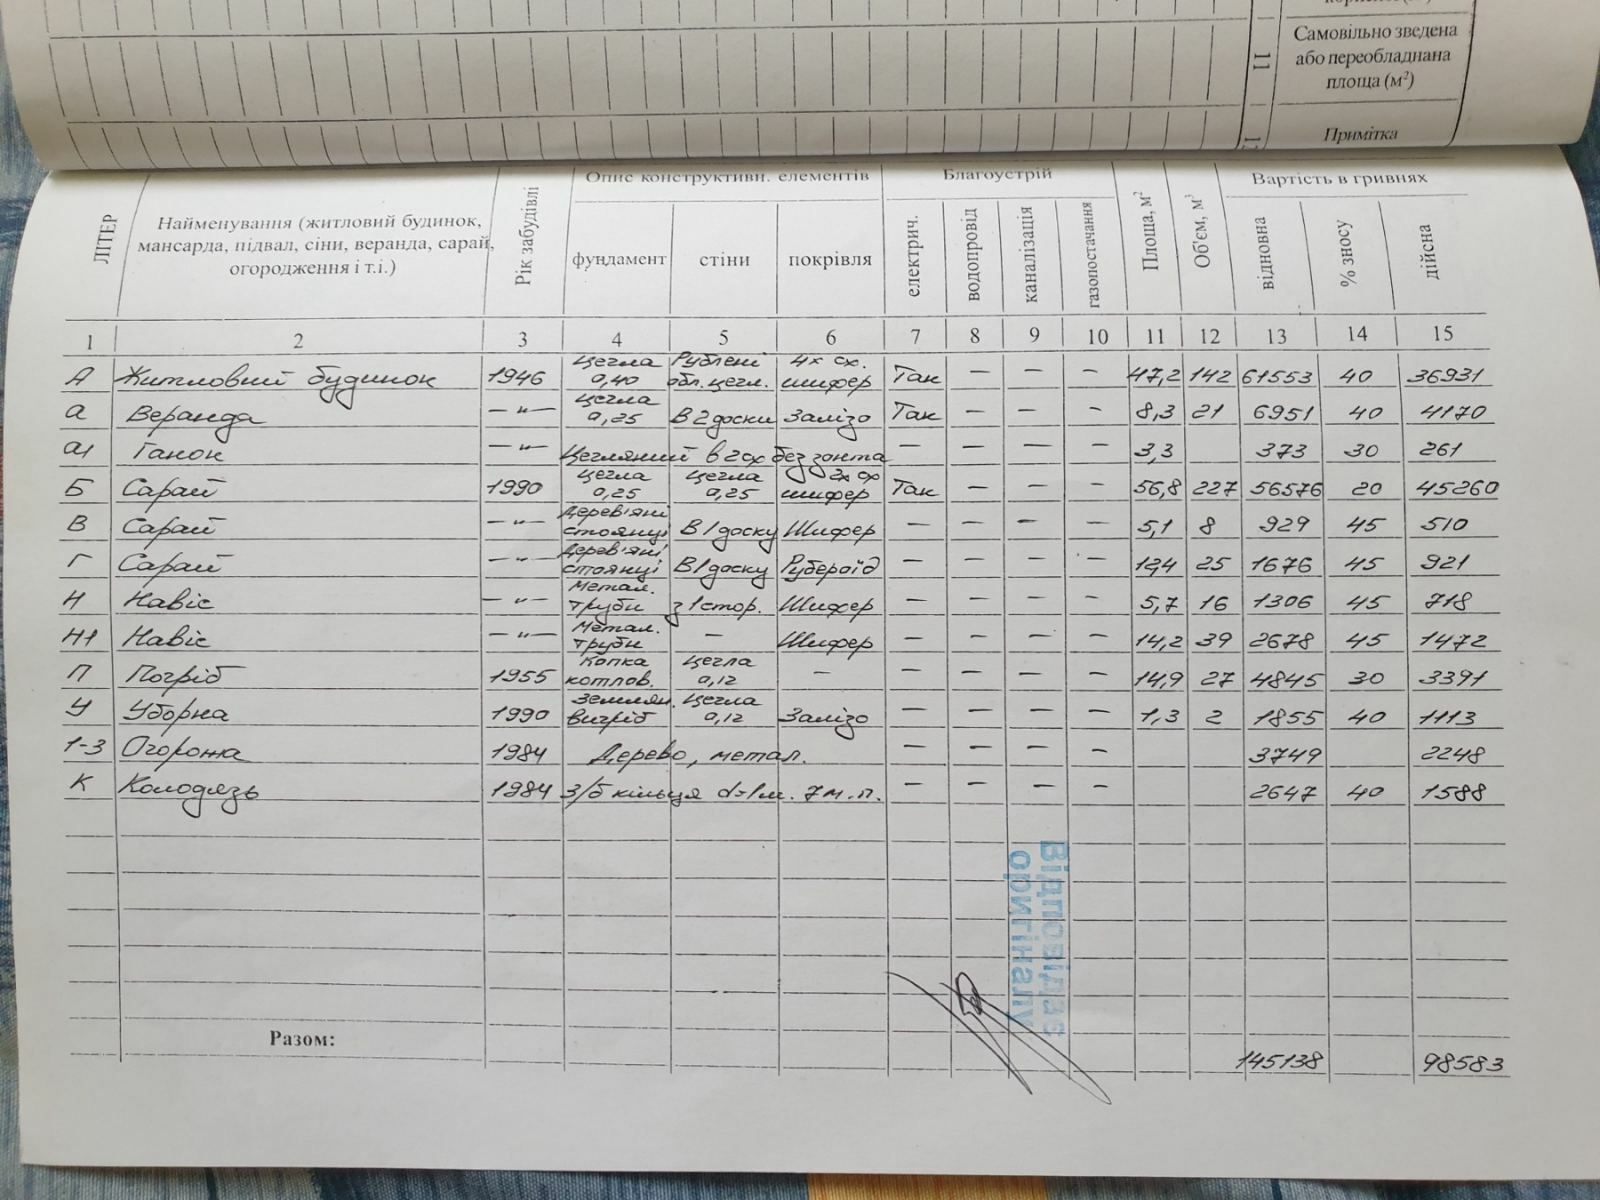 11
Самовільно зведена
або переобладнана
площа (м²)
Примітка
ЛІТЕР
Найменування (житловий будинок,
мансарда, підвал, сіни, веранда, сарай,
огородження і т.і.)
Рік забудівлі
Опис конструктивн. елементів
фундамент
стіни
покрівля
Благоустрій
електрич.
водопровід
каналізація
газопостачання
Площа, м²
Об'єм, м³
Вартість в гривнях
відновна
% зносу
дійсна
1 2 3 4 5 6 7 8 9 10 11 12 13 14 15
А Житловий будинок 1946 Цегла 0,40 Рублені обл. цегл. 4х сх. шифер Так — — — 47,2 142 61553 40 36931
а Веранда —"— Цегла 0,25 В 2 доски Залізо Так — — — 8,3 21 6951 40 4170
а1 Ганок —"— Цегляний в 2 сх без зонта — — — — 3,3 373 30 261
Б Сарай 1990 Цегла 0,25 Цегла 0,25 2х сх шифер Так — — — 56,8 227 56576 20 45260
В Сарай —"— Дерев'яні стоянці В 1 доску Шифер — — — — 5,1 8 929 45 510
Г Сарай —"— Дерев'яні стоянці В 1 доску Рубероїд — — — — 12,4 25 1676 45 921
Н Навіс —"— Метал. труби з 1 стор. Шифер — — — — 5,7 16 1306 45 718
Н1 Навіс —"— Метал. труби — Шифер — — — — 14,2 39 2678 45 1472
П Погріб 1955 Копка котлов. Цегла 0,12 — — — — — 14,9 27 4845 30 3391
У Уборна 1990 Землян. вигріб Цегла 0,12 Залізо — — — — 1,3 2 1855 40 1113
1-3 Огорожа 1984 Дерево, метал. — — — — 3749 2248
К Колодязь 1984 З/б кільця d=1м. 7 м.п. — — — — 2647 40 1588
Відповідає
оригіналу
Разом: 145138 98583